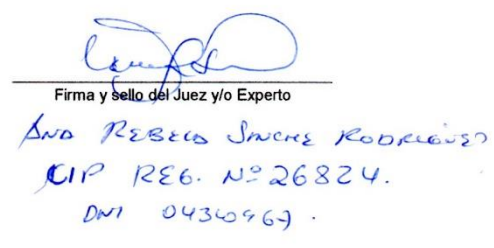 Firma y sello del Juez y/o Experto
ANA REBECA SANCHEZ RODRIGUEZ
CIP REG. Nº 26824.
DNI